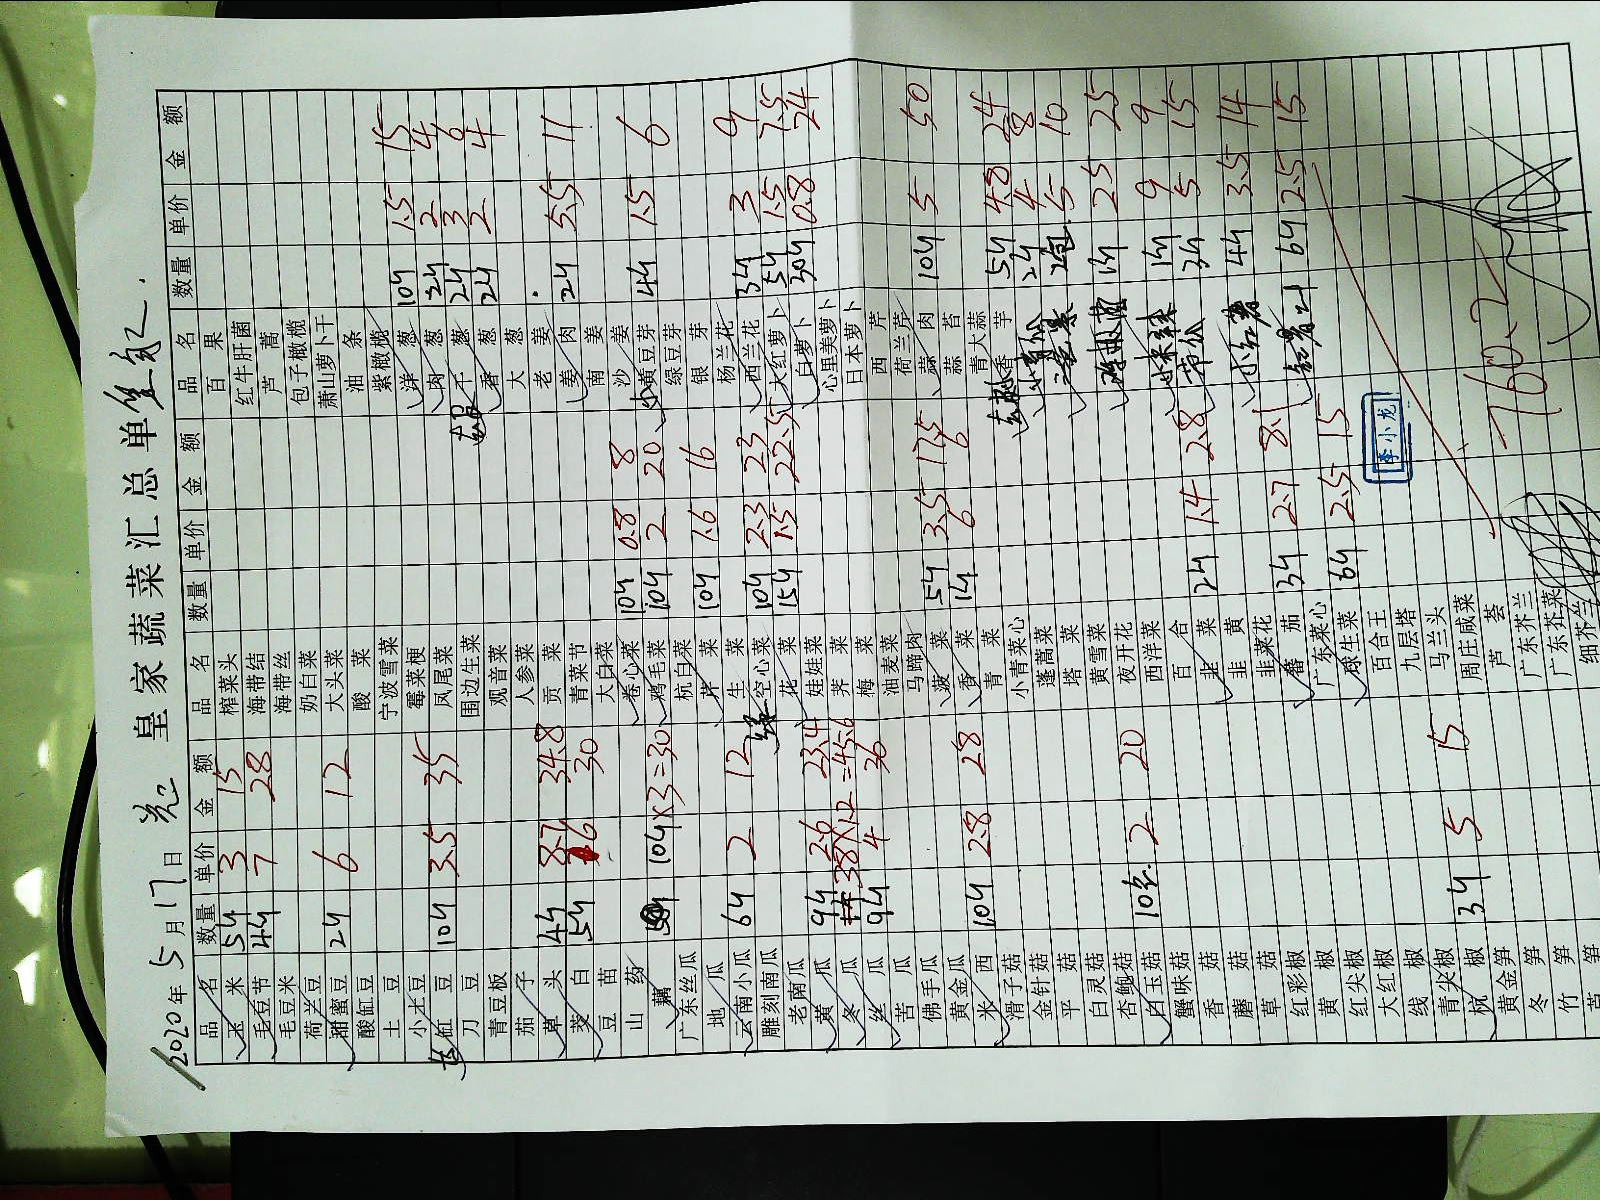 2020年5月17日 皇家蔬菜汇总单
品名 数量 单价 金额
玉米 5斤 3 15
毛豆节 4斤 7 28
毛豆米
荷兰豆
甜蜜豆 2斤 6 12
酸缸豆
土豆
小土豆
缸豆 10斤 3.5 35
刀豆
青豆板
茄子
草头 4斤 8.7 34.8
茭白 5斤 6 30
豆苗
山药
藕 10斤×3=30
广东丝瓜
地瓜
云南小瓜 6斤 2 12
雕刻南瓜
老南瓜
黄瓜 9斤 2.6 23.4
冬瓜 38×1.2=45.6
丝瓜 9斤 4 36
苦瓜
佛手瓜
黄金瓜
米西 10斤 2.8 28
滑子菇
金针菇
平菇
白灵菇
杏鲍菇
白玉菇 10包 2 20
蟹味菇
香菇
蘑菇
草菇
红彩椒
黄椒
红尖椒
大红椒
线椒
青尖椒
杭椒 3斤 5 15
黄金笋
冬笋
竹笋
品名 数量 单价 金额
榨菜头
海带结
海带丝
奶白菜
大头菜
酸菜
宁波雪菜
霉菜梗
凤尾菜
围边生菜
观音菜
人参菜
贡菜
青菜节
大白菜
卷心菜 10斤 0.8 8
鸡毛菜 10斤 2 20
杭白菜
芽菜 10斤 1.6 16
生菜
空心菜 10斤 2.3 23
花菜 15斤 1.5 22.5
娃娃菜
荠菜
梅菜
油麦菜
马蹄肉
菠菜 5斤 3.5 17.5
香菜 1斤 6 6
青菜
小青菜心
蓬蒿菜
塔菜
黄雪菜
夜开花
西洋菜
百合
韭菜 2斤 1.4 2.8
韭黄
韭菜花
番茄 3斤 2.7 8.1
广东菜心
球生菜 6斤 2.5 15
百合王
九层塔
马兰头
周庄咸菜
芦荟
广东芥兰
广东芥菜
细芥兰
品名 数量 单价 金额
百果
红牛肝菌
芦蒿
包子橄榄
萧山萝卜干
油条
紫橄榄
洋葱 10斤 1.5 15
肉葱 2斤 2 4
干葱 2斤 3 6
香葱 2斤 2 4
大葱
老姜
姜肉 2斤 5.5 11
南姜
沙姜
小黄豆芽 4斤 1.5 6
绿豆芽
银芽
杨兰花
西兰花 3斤 3 9
大红萝卜 5斤 1.5 7.5
白萝卜 30斤 0.8 24
心里美萝卜
日本萝卜
西芹
荷兰芹
蒜肉 10斤 5 50
蒜苔
青大蒜
香芋 5斤 4.8 24
2斤 4 8
2包 5 10
1斤 25 25
1斤 9 9
3斤 5 15
4斤 3.5 14
6斤 2.5 15
李小龙
760.2